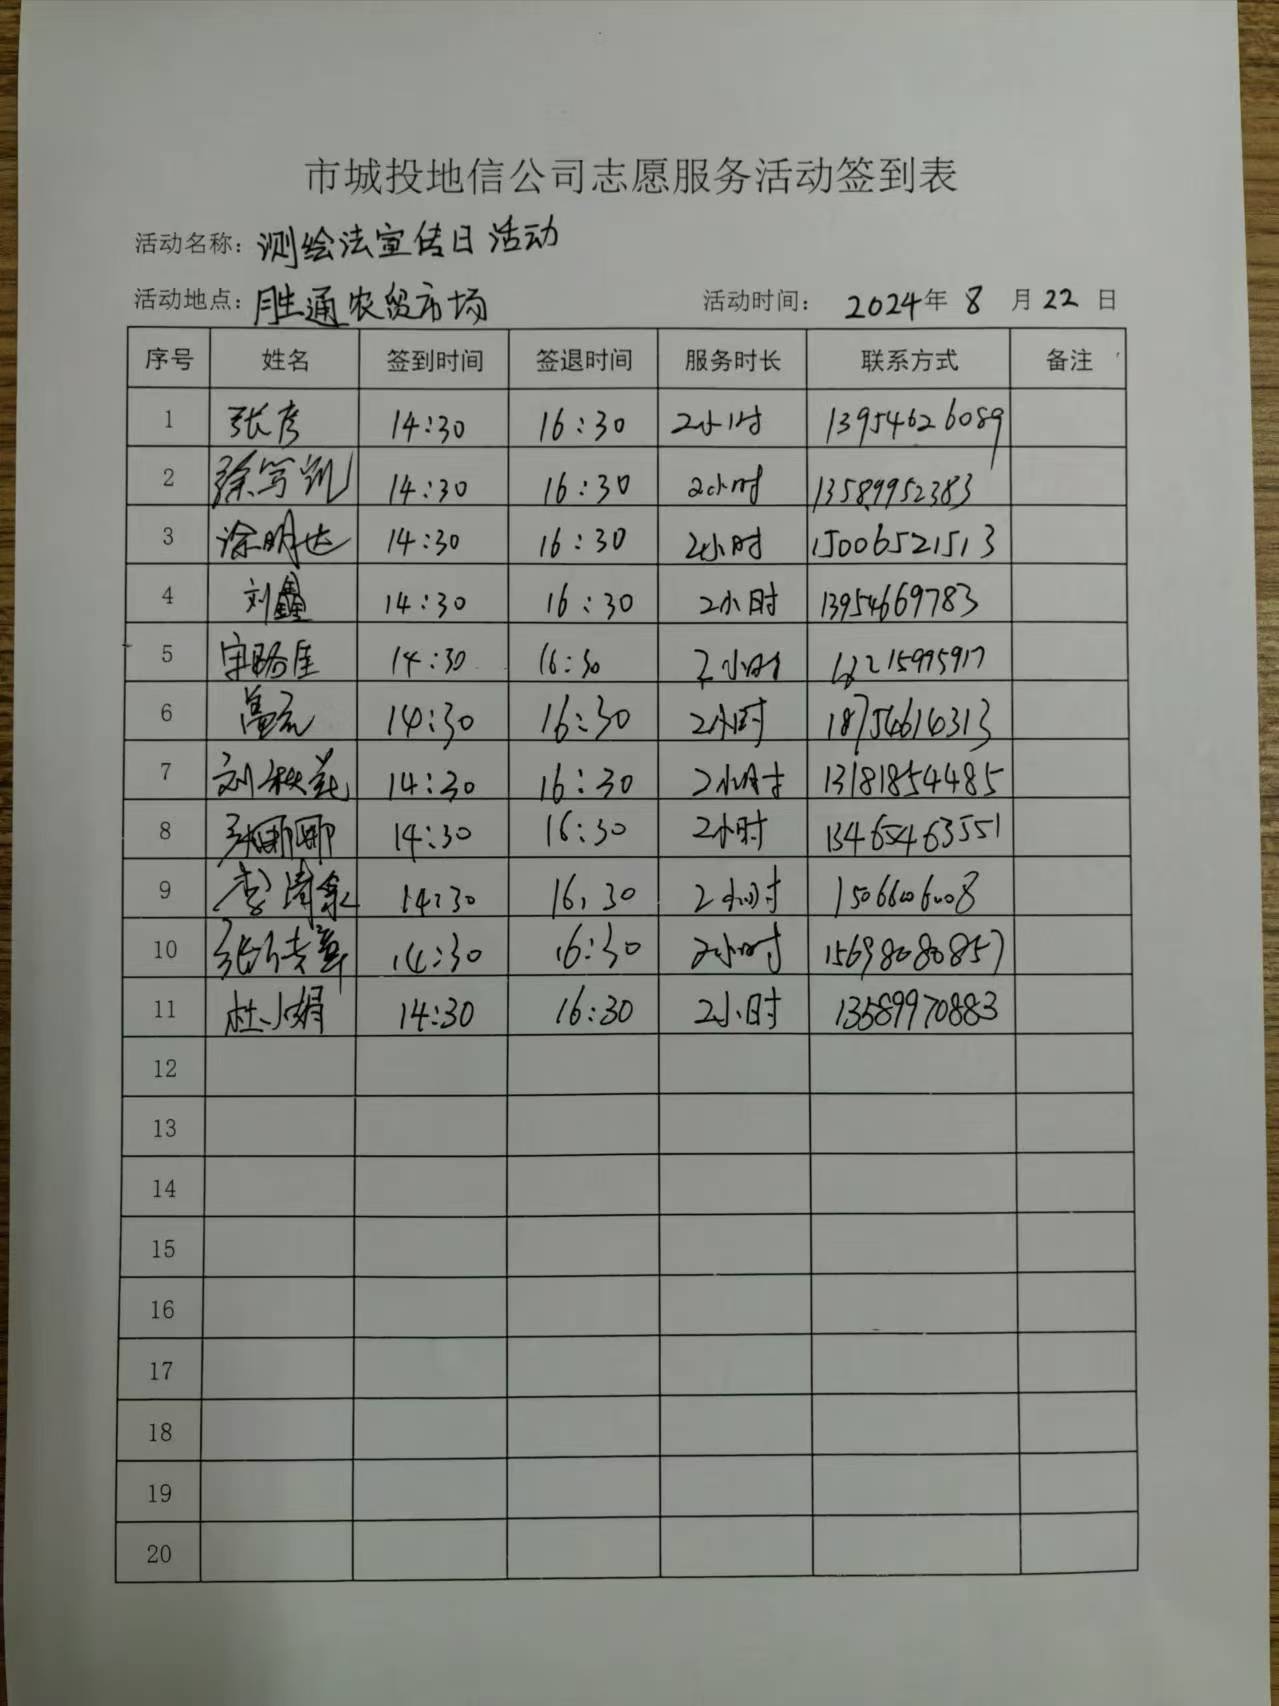 市城投地信公司志愿服务活动签到表
活动名称：测绘法宣传日活动
活动地点：胜通农贸市场 活动时间： 2024年 8 月 22 日
序号 姓名 签到时间 签退时间 服务时长 联系方式 备注
1 张彦 14:30 16:30 2小时 13954626089
2 徐笃凯 14:30 16:30 2小时 13589952383
3 徐明达 14:30 16:30 2小时 15006521513
4 刘鑫 14:30 16:30 2小时 13954669783
5 14:30 16:30 2小时
6 14:30 16:30 2小时 18754614313
7 刘秋苑 14:30 16:30 2小时 13181854485
8 张娜娜 14:30 16:30 2小时 13465463551
9 14:30 16:30 2小时
10 14:30 16:30 2小时 15698080857
11 杜小娟 14:30 16:30 2小时 13589970883
12
13
14
15
16
17
18
19
20